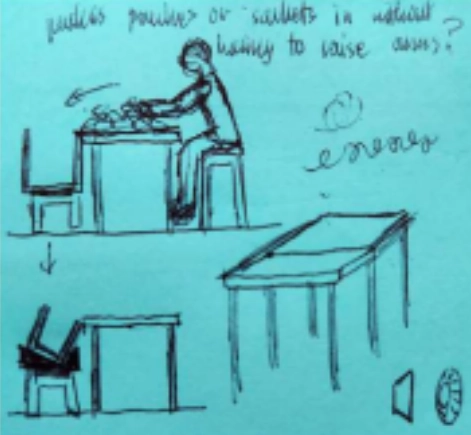 pushes pouches or sachets in without
having to raise arms?